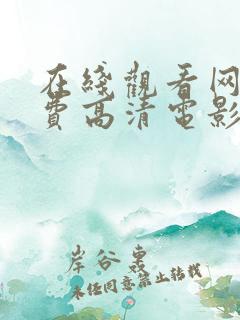 在綫觀看网
費高清電影
岸谷惠
未经同意禁止转载